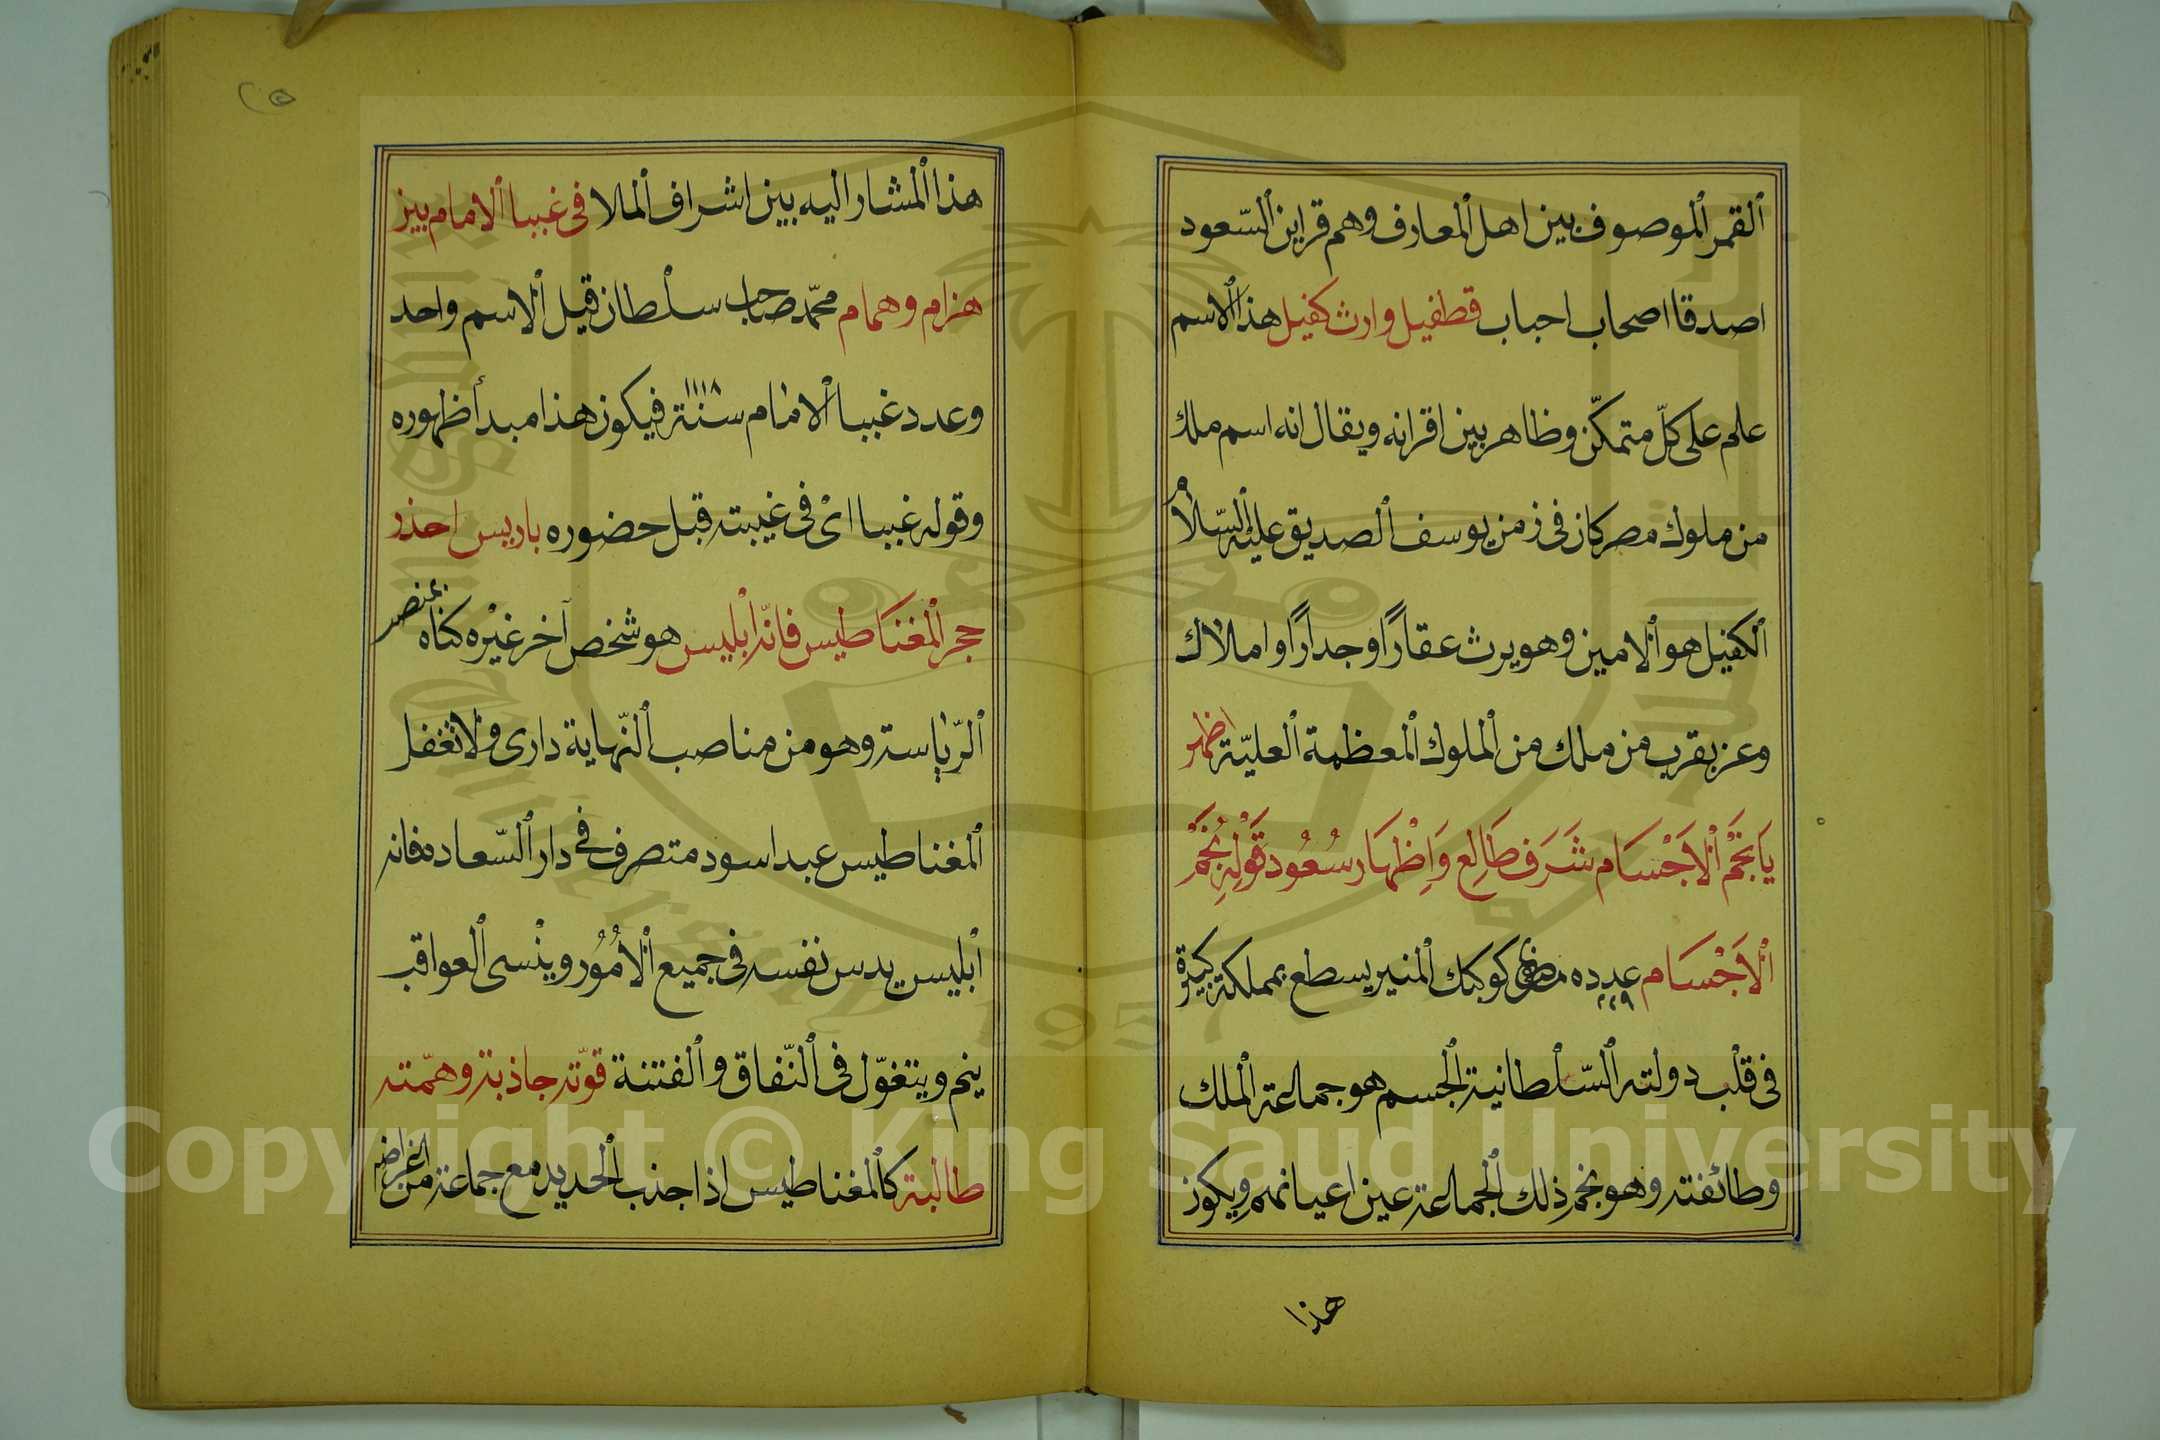 القمر الموصوف بين اهل المعارف وهم قراين السّعود
اصدقا اصحاب احباب قطفيل وارث كفيل هذا الاسم
علم على كلّ متمكّن وظاهر بين اقرانه ويقال انه اسم ملك
من ملوك مصر كان فى زمن يوسف الصديق عليه السّلام
الكفيل هو الامين وهو يرث عقارًا وجدارًا واملاك
وعز بقرب من ملك من الملوك المعظمة العليّة
يَا نَجْمَ الاَجْسَام شَرَف طَالِع وَاِظْهَار سُعُود قَوْلِه نَجْمُ
الاَجْسَام عدده ٢٢٩ كوكبك المنير يسطع بمملكة كبيرة
فى قلب دولته السّلطانية الجسم هو جماعة الملك
وطائفته وهو نجم ذلك الجماعة عين اعيانهم ويكون
هذا
٢٥
هذا المشار اليه بين اشراف الملا فى غيبا الامام بين
هزام وهمام محمّد صاحب سلطان قيل الاسم واحد
وعدد غيبا الامام سنة ١١١٨ فيكون هذا مبدأ ظهوره
وقوله غيبا اى فى غيبته قبل حضوره باريس احذر
حجر المغناطيس فانّه ابليس هو شخص آخر غيْره كناه بمنصر
الرّياسة وهو من مناصب النّهاية دارى ولا تغفل
المغناطيس عبد اسود متصرف فى دار السّعاده فانه
ابليس يدس نفسه فى جميع الامُوُر وينْسى العواقب
ينم ويتغوّل فى النّفاق والفتنة قوّته جاذبة وهمّته
طالبة كالمغناطيس اذا جذب الحديد مع جماعة من
Copyright © King Saud University
1957